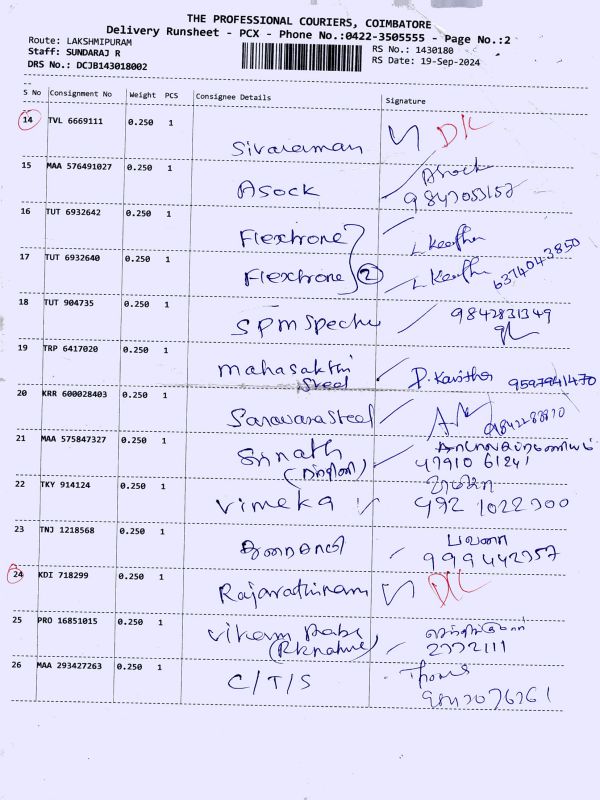 THE PROFESSIONAL COURIERS, COIMBATORE
Delivery Runsheet - PCX - Phone No.:0422-3505555 - Page No.:2
Route: LAKSHMIPURAM
Staff: SUNDARAJ R
DRS No.: DCJB143018002
RS No.: 1430180
RS Date: 19-Sep-2024
S No Consignment No Weight PCS Consignee Details Signature
14 TVL 6669111 0.250 1 Sivaraman D/L
15 MAA 576491027 0.250 1 Asock Asock
16 TUT 6932642 0.250 1 Flextrone
17 TUT 6932640 0.250 1 Flextrone 2 6374043850
18 TUT 904735 0.250 1 SPM 9842831349
19 TRP 6417020 0.250 1 mahasakthi Steel P. Kavitha 9597941470
20 KRR 600028403 0.250 1 Saravana Steel
21 MAA 575847327 0.250 1 Srinath 47910 61241
22 TKY 914124 0.250 1 Vimeka
23 TNJ 1218568 0.250 1
24 KDI 718299 0.250 1 Rajarathinam D/L
25 PRO 16851015 0.250 1 Vikram 2772111
26 MAA 293427263 0.250 1 C/T/S